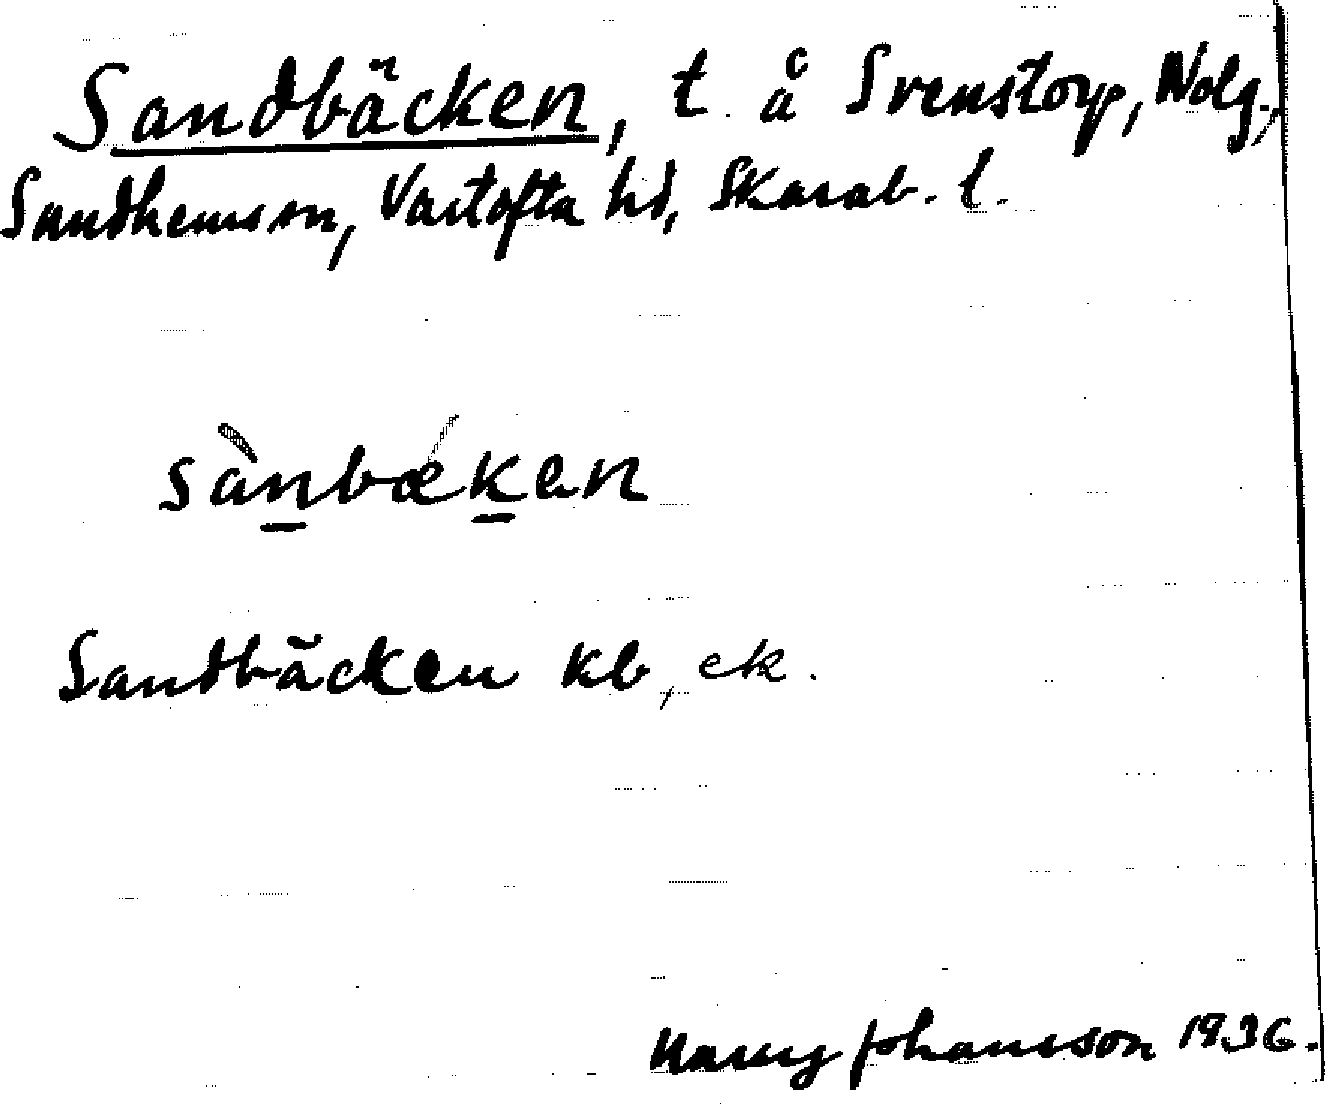 Sandbäcken, t. å Svenstorp, Nolg.,
Sandhemssn, Vartofta hd, Skarab. l.
sànbǽken
Sandbäcken kb, ek.
Harry Johansson 1936.